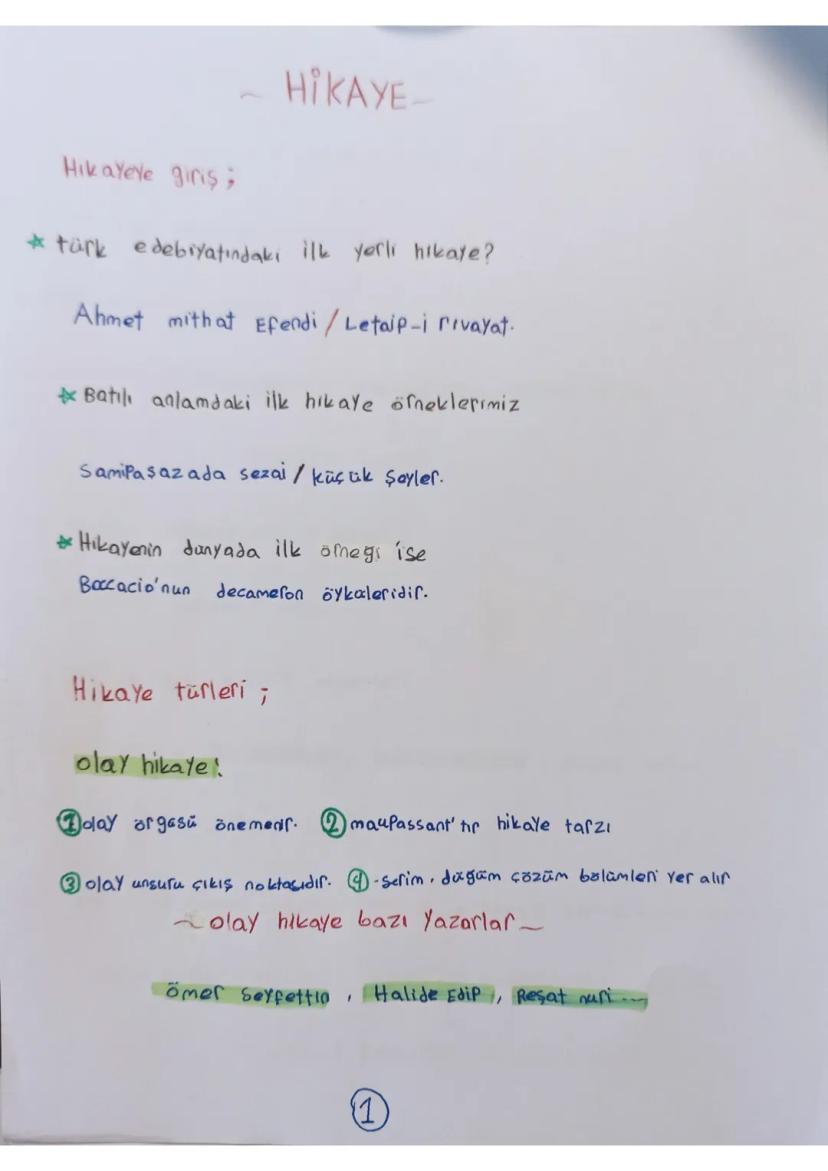 ~ HİKAYE ~
Hıkayeye giriş ;
türk edebiyatındaki ilk yerli hıkaye?
Ahmet mithat Efendi / Letaip-i rivayat.
Batılı anlamdaki ilk hıkaye örneklerimiz
Samipaşazada sezai / küçük şeyler.
Hıkayenin dunyada ilk örnegi ise
Boccacio'nun decameron öykületidir.
Hikaye türleri ;
olay hikaye:
1 olay örgüsü önemedir. 2 maupassant'tır hikaye tarzı
3 olay unsuru çıkış noktasıdır. 4 -serim, düğüm çözüm bölümleri yer alır
~ olay hıkaye bazı yazarlar ~
Ömer Seyfettin , Halide Edip , Reşat nuri ...
1